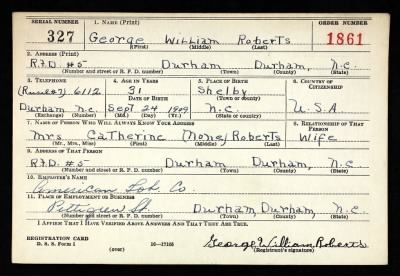 SERIAL NUMBER 1. NAME (Print) ORDER NUMBER
327 George William Roberts 1861
(First) (Middle) (Last)
2. ADDRESS (Print)
R.F.D. #5 Durham Durham, N.C.
(Number and street or R. F. D. number) (Town) (County) (State)
3. TELEPHONE 4. AGE IN YEARS 5. PLACE OF BIRTH 6. COUNTRY OF CITIZENSHIP
6112 31 Shelby
DATE OF BIRTH (Town or county)
Durham N.C. Sept 24 1909 N.C. U.S.A
(Exchange) (No.) (Mo.) (Day) (Yr.) (State or country)
7. NAME OF PERSON WHO WILL ALWAYS KNOW YOUR ADDRESS 8. RELATIONSHIP OF THAT PERSON
Mrs Catherine (None) Roberts Wife
(Mr., Mrs., Miss) (First) (Middle) (Last)
9. ADDRESS OF THAT PERSON
R.F.D. #5 Durham Durham, N.C.
(Number and street or R. F. D. number) (Town) (County) (State)
10. EMPLOYER'S NAME
American Tob. Co.
11. PLACE OF EMPLOYMENT OR BUSINESS
Pettigrew St. Durham Durham, N.C.
(Number and street or R. F. D. number) (Town) (County) (State)
I AFFIRM THAT I HAVE VERIFIED ABOVE ANSWERS AND THAT THEY ARE TRUE.
REGISTRATION CARD
D. S. S. Form 1 (over) 16-17105 George William Roberts
(Registrant's signature)